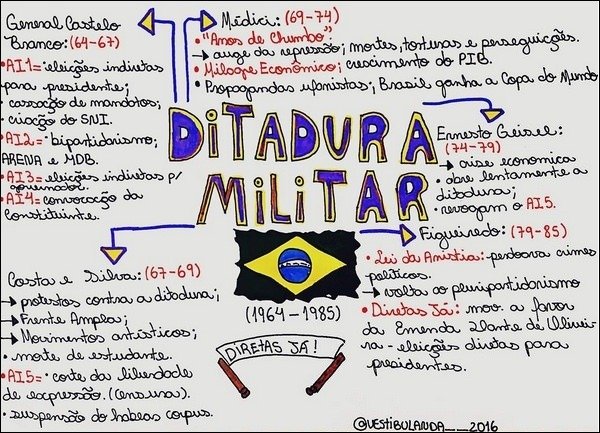 General Castelo
Branco: (64-67)
• AI1= eleições indiretas
para presidente;
• cassação de mandatos;
• criação do SNI.
AI2= • bipartidarismo;
ARENA e MDB.
AI3= eleições indiretas p/
governador.
AI4= convocação da
Constituinte.
Médici: (69-74)
• "Anos de Chumbo":
→ auge da repressão; mortes, torturas e perseguições.
• Milagre Econômico; crescimento do PIB.
• Propagandas ufanistas; Brasil ganha a Copa do Mundo
DITADURA
MILITAR
(1964-1985)
DIRETAS JÁ!
Ernesto Geisel:
(74-79)
→ crise economica
• abre lentamente a
ditadura;
• revogam o AI5.
Figueiredo: (79-85)
• Lei da Anistia: perdoava crimes
políticos.
→ volta ao pluripartidarismo
• Diretas Já: mov. a favor
da Emenda Dante de Olivei
ra - eleições diretas para
presidentes.
Costa e Silva: (67-69)
→ protestos contra a ditadura;
→ Frente Ampla;
→ Movimentos artísticos;
• morte de estudante.
• AI5= • corte da liberdade
de expressão. (censura).
• suspensão do habeas corpus.
@VESTIBULANDA__2016